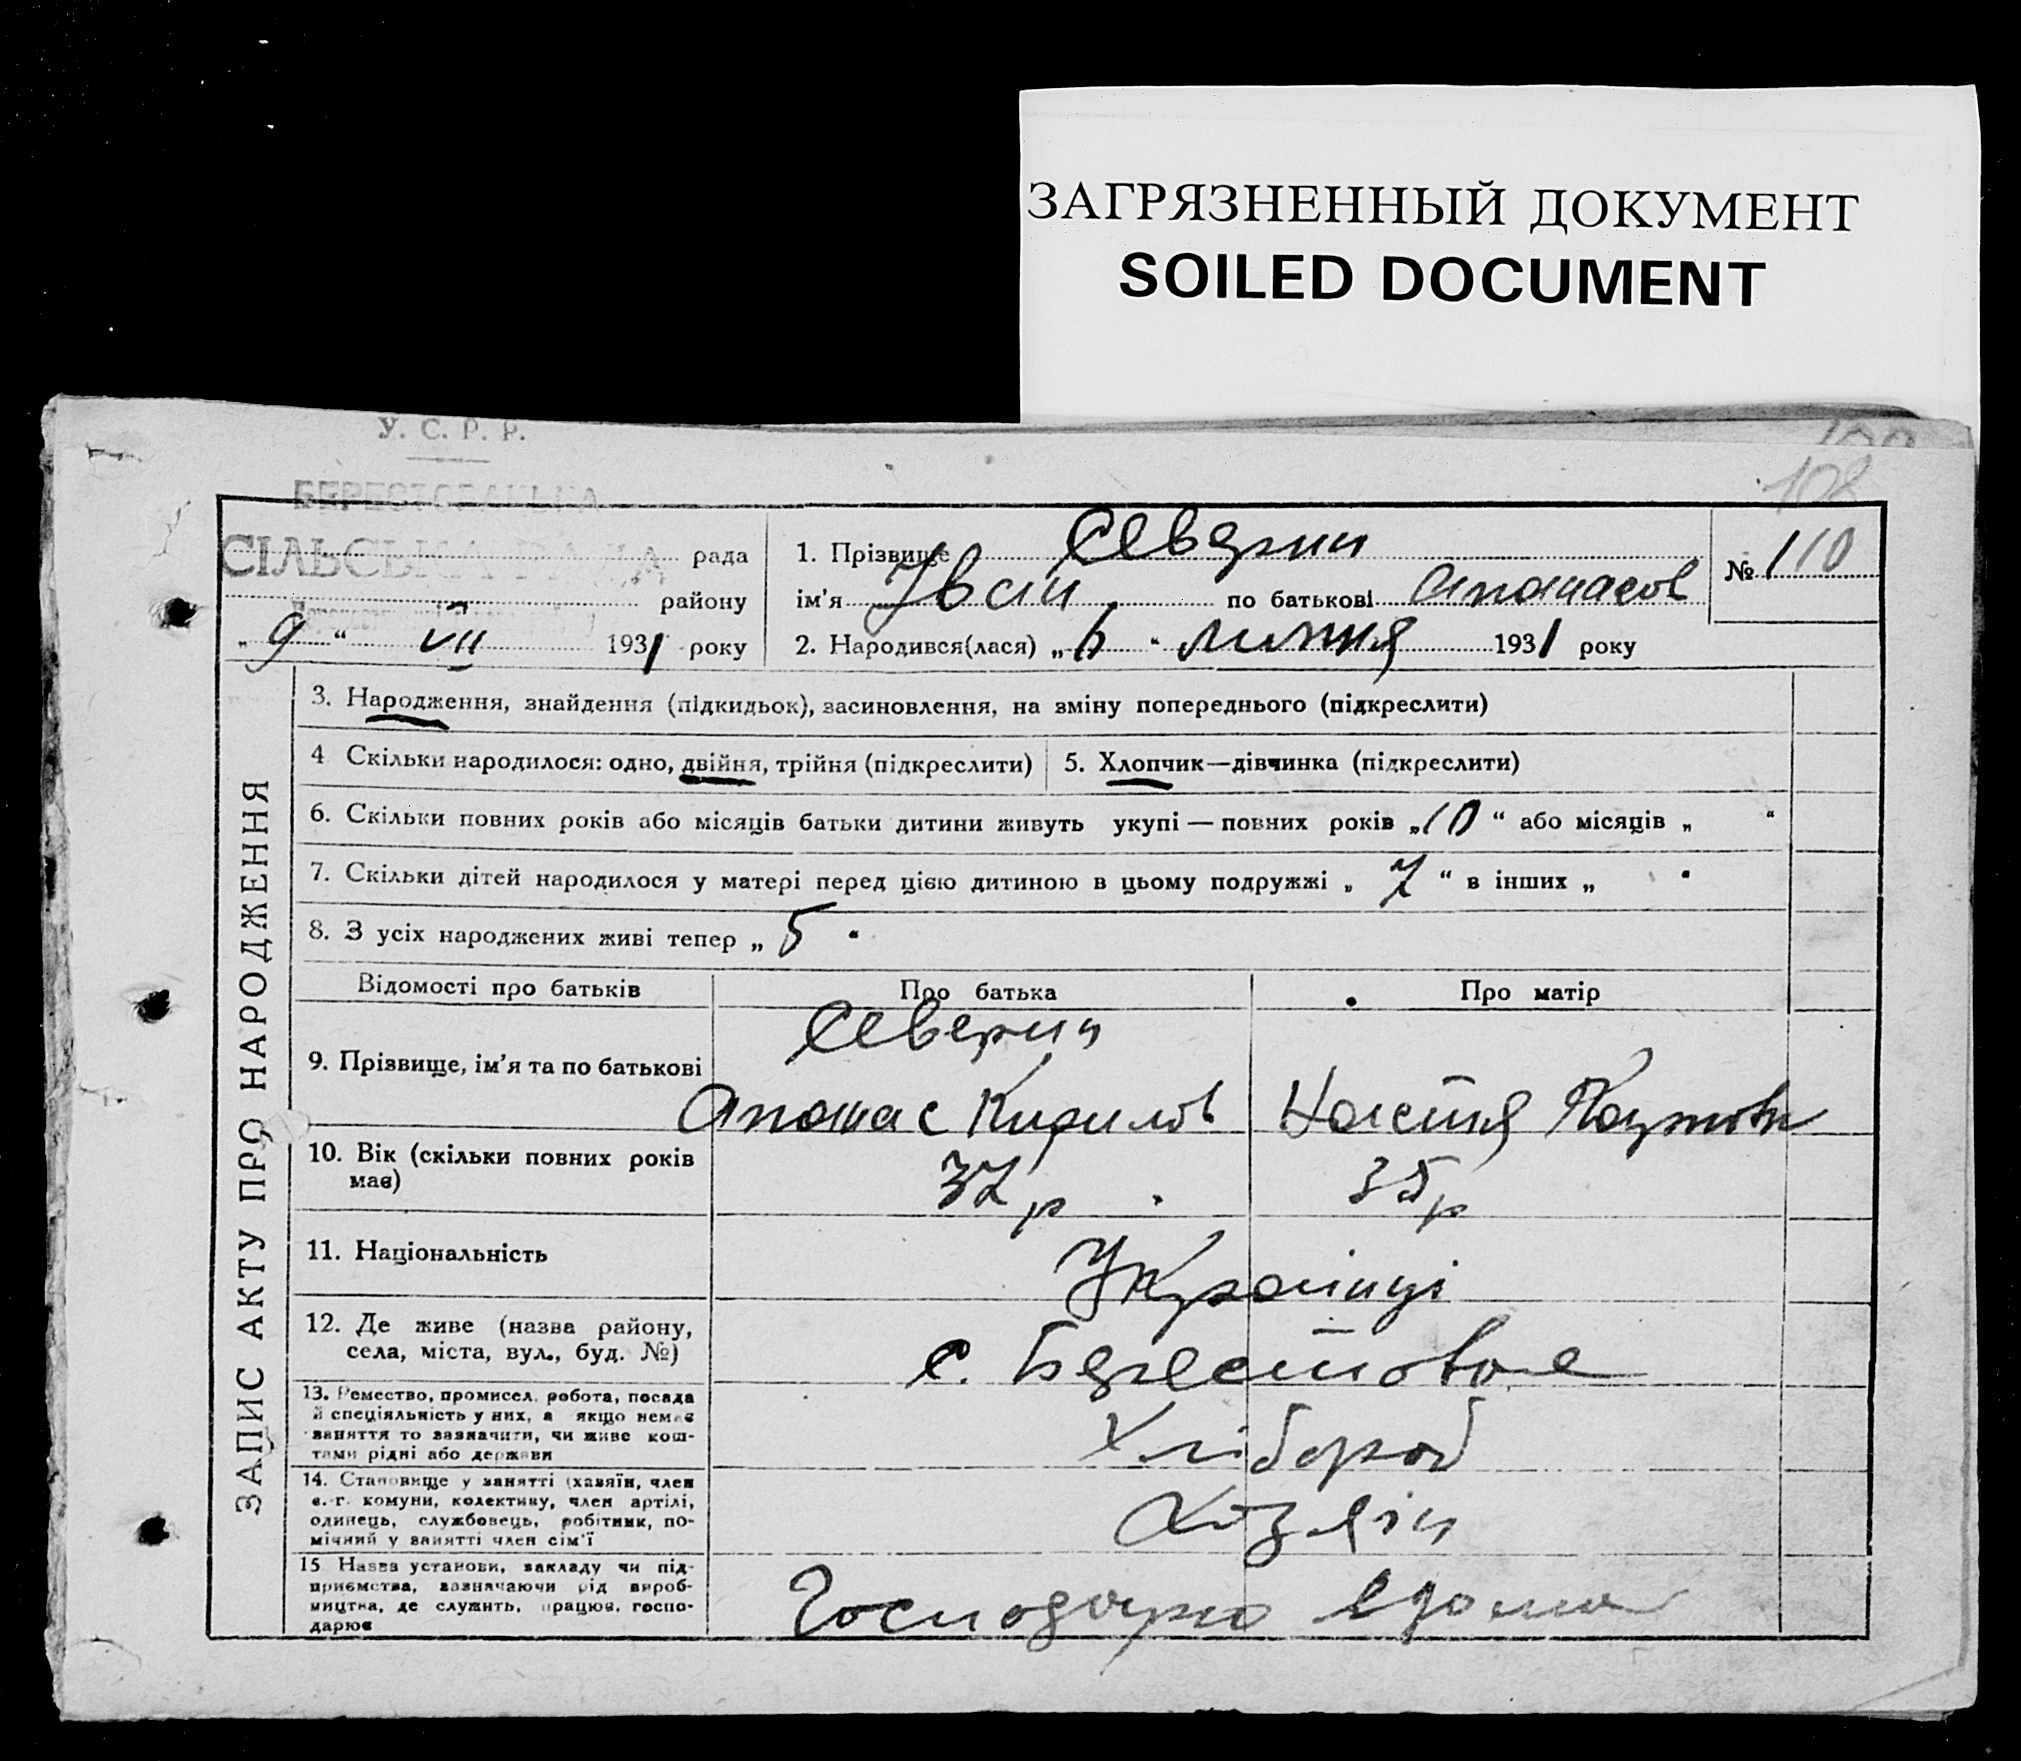 ЗАГРЯЗНЕННЫЙ ДОКУМЕНТ
SOILED DOCUMENT
У. С. Р. Р.
108
СІЛЬСЬКА РАДА
рада
району
„ 9 “ VII 1931 року
1. Прізвище Северин
ім’я Іван по батькові Опанасов
2. Народився(лася) „ 6 “ липня 1931 року
№ 110
ЗАПИС АКТУ ПРО НАРОДЖЕННЯ
3. Народження, знайдення (підкидьок), засиновлення, на зміну попереднього (підкреслити)
4 Скільки народилося: одно, двійня, трійня (підкреслити)
5. Хлопчик—дівчинка (підкреслити)
6. Скільки повних років або місяців батьки дитини живуть укупі — повних років „10“ або місяців „ “
7. Скільки дітей народилося у матері перед цією дитиною в цьому подружжі „ 7 “ в інших „ “
8. З усіх народжених живі тепер „ 5 “
Відомості про батьків Про батька Про матір
9. Прізвище, ім’я та по батькові
Северин
Опанас Кирилов Настя
10. Вік (скільки повних років має)
37 р 35 р
11. Національність
Українці
12. Де живе (назва району, села, міста, вул., буд. №)
с. Берестовое
13. Ремество, промисел, робота, посада
й спеціяльність у них, а якщо немає
заняття то зазначити, чи живе кош-
тами рідні або держави
Хлібороб
14. Становище у занятті (хазяїн, член
с.-г. комуни, колективу, член артілі,
одинець, службовець, робітник, по-
мічний у занятті член сім’ї
Хозяїн
15 Назва установи, закладу чи під-
приємства, зазначаючи рід вироб-
ництва, де служить, працює, госпо-
дарює
Господарю вдома